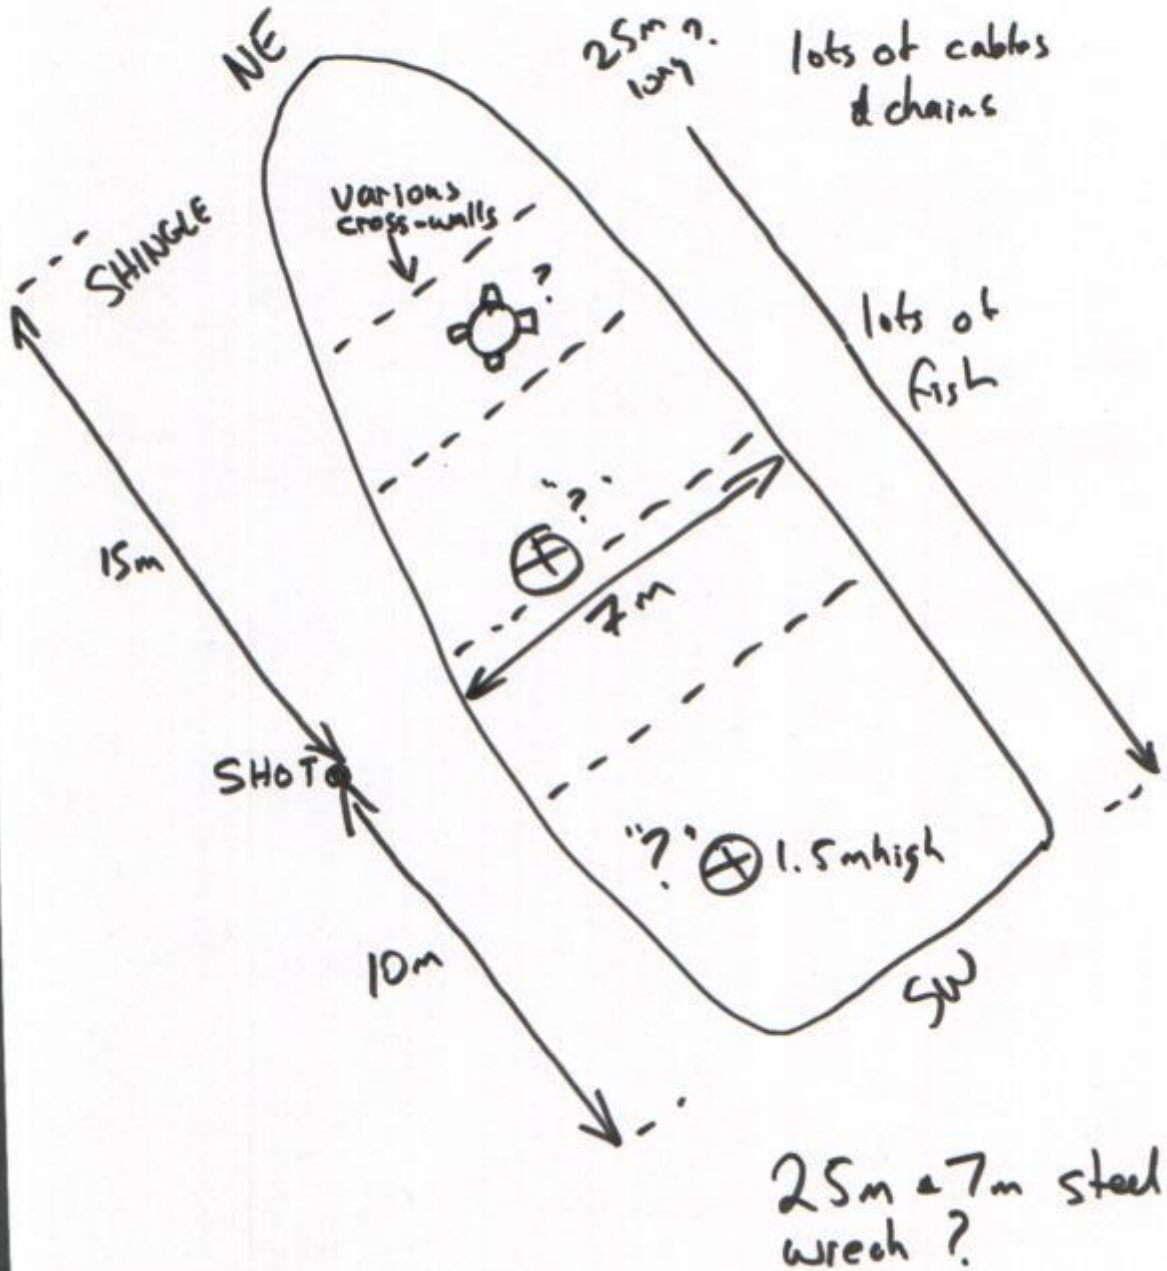 NE
25m ?.
long
lots of cables
& chains
various
cross-walls
SHINGLE
?
lots of
fish
15m
"?"
7m
SHOT
"?" 1.5m high
10m
SW
25m x 7m steel
wreck ?